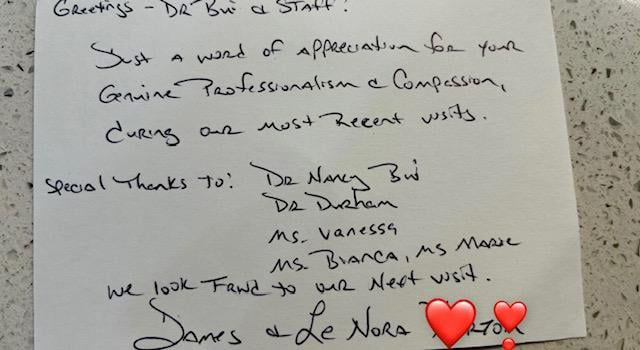 Greetings - Dr Bui & Staff!
Just a word of appreciation for your
Genuine Professionalism & Compession,
during our most recent visits.
Special Thanks to: Dr Nancy Bui
Dr Durham
Ms. Vanessa
Ms. Bianca, Ms Marie
We look Frwd to our Next visit.
James & Le Nora